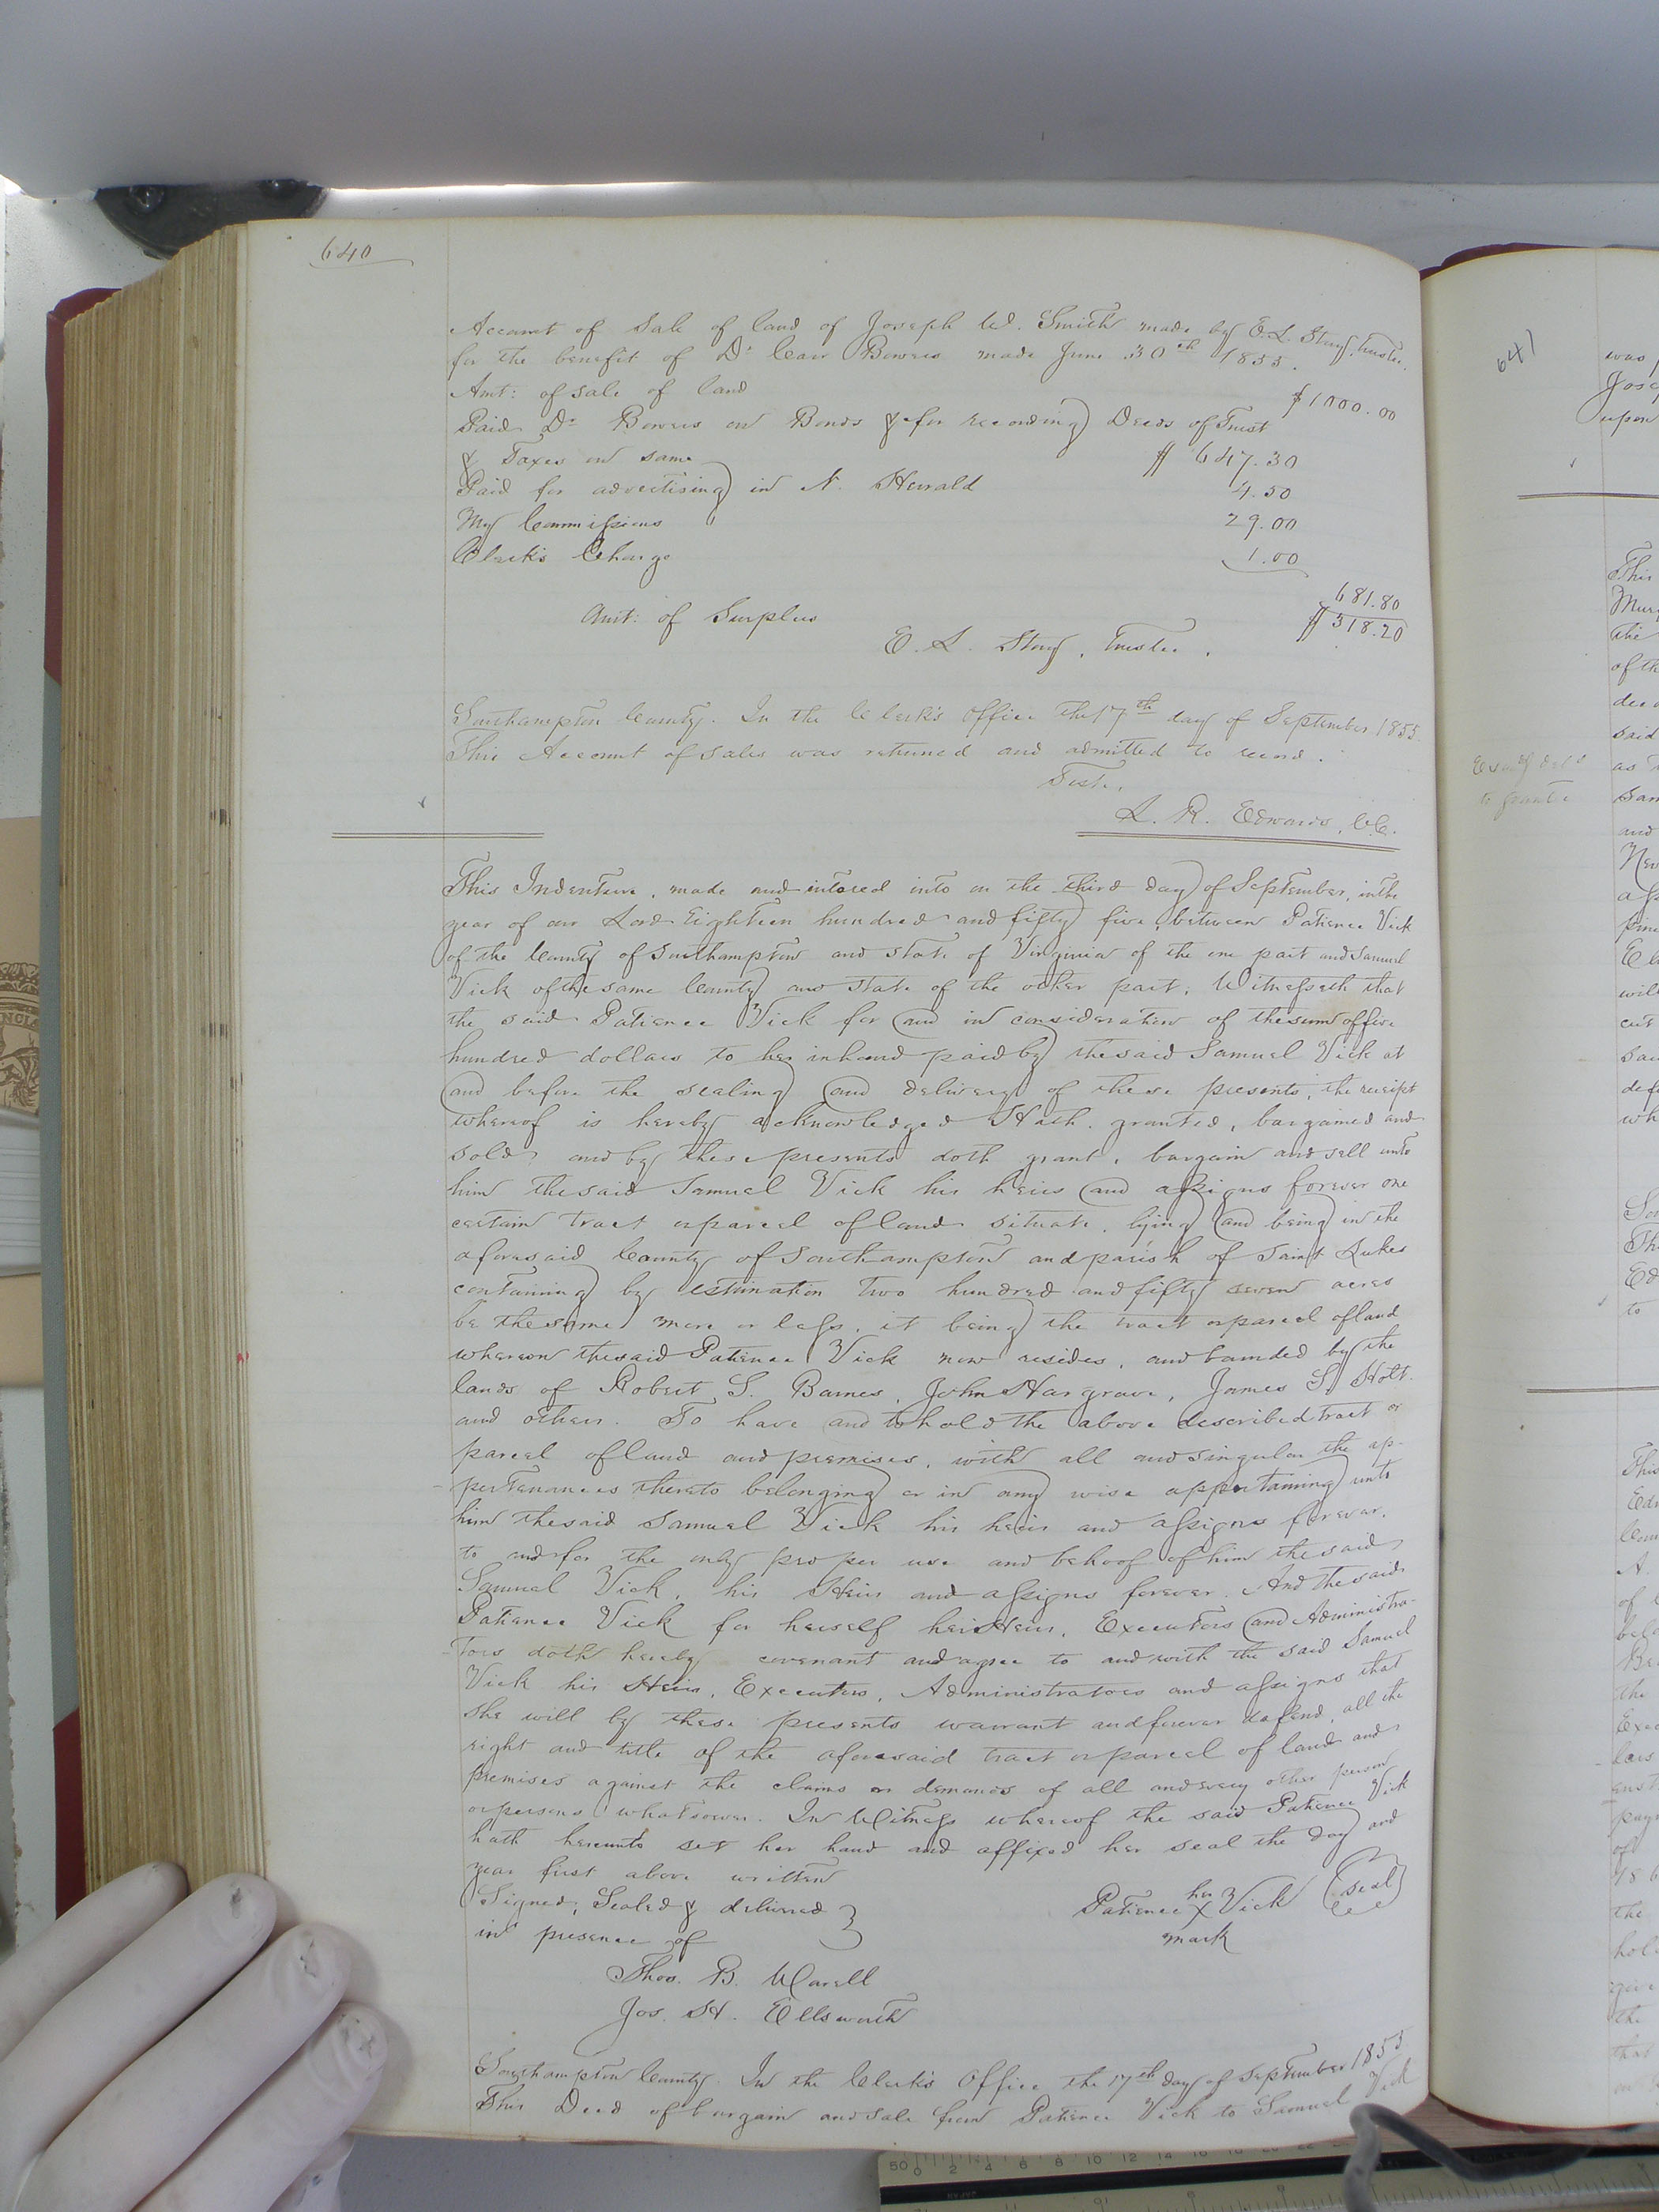 640
Account of Sale of land of Joseph W. Smith made by E. L. Story, Trustee,
for the benefit of Dr Bowers made June 30th 1855.
Amt: of sale of land $1000.00
Paid Dr Bowers on Bonds & for recording Deeds of Trust
& Taxes on same $ 647.30
Paid for advertising in N. Herald 4.50
My Commissions 29.00
Clerk's Charge 1.00
681.80
Amt: of Surplus $318.20
E. L. Story, Trustee.
Southampton County. In the Clerk's Office the 17th day of September 1855
This Account of sales was returned and admitted to record.
Teste,
L. R. Edwards, C.C.
This Indenture, made and intered into on the third day of September, in the
year of our Lord Eighteen hundred and fifty five, between Patience Vick
of the County of Southampton and State of Virginia of the one part and Samuel
Vick of the same County and State of the other part; Witnesseth that
the said Patience Vick for and in consideration of the sum of five
hundred dollars to her in hand paid by the said Samuel Vick at
and before the sealing and delivery of these presents, the receipt
whereof is hereby acknowledged Hath granted, bargained and
sold, and by these presents doth grant, bargain and sell unto
him the said Samuel Vick his heirs and assigns forever one
certain tract or parcel of land situate, lying and being in the
aforesaid County of Southampton and parish of Saint Lukes
containing by estimation two hundred and fifty seven acres
be the same more or less, it being the tract or parcel of land
whereon the said Patience Vick now resides, and bounded by the
lands of Robert S. Barnes, John Hargrave, James S. Holt
and others. To have and to hold the above described tract or
parcel of land and premises, with all and singular the ap-
-pertenances thereto belonging or in any wise appertaining unto
him the said Samuel Vick his heirs and assigns forever,
to and for the only proper use and behoof of him the said
Samuel Vick, his Heirs and assigns forever. And the said
Patience Vick for herself her Heirs, Executors and Administra-
-tors doth hereby covenant and agree to and with the said Samuel
Vick his Heirs, Executors, Administrators and assigns that
she will by these presents warrant and forever defend, all the
right and title of the aforesaid tract or parcel of land and
premises against the claims or demands of all and every other person
or persons whatsoever. In Witness whereof the said Patience Vick
hath hereunto set her hand and affixed her seal the day and
year first above written
Signed, Sealed & delivered Patience her X Vick (seal)
in presence of mark
Thos. B. Warell
Jos. H. Ellsworth
Southampton County. In the Clerk's Office the 17th day of September 1855
This Deed of bargain and sale from Patience Vick to Samuel Vick
641
was
upon
This
the
of th
said
as
and
New
will
cut
sai
wh
to
This
of
the
the
the
that